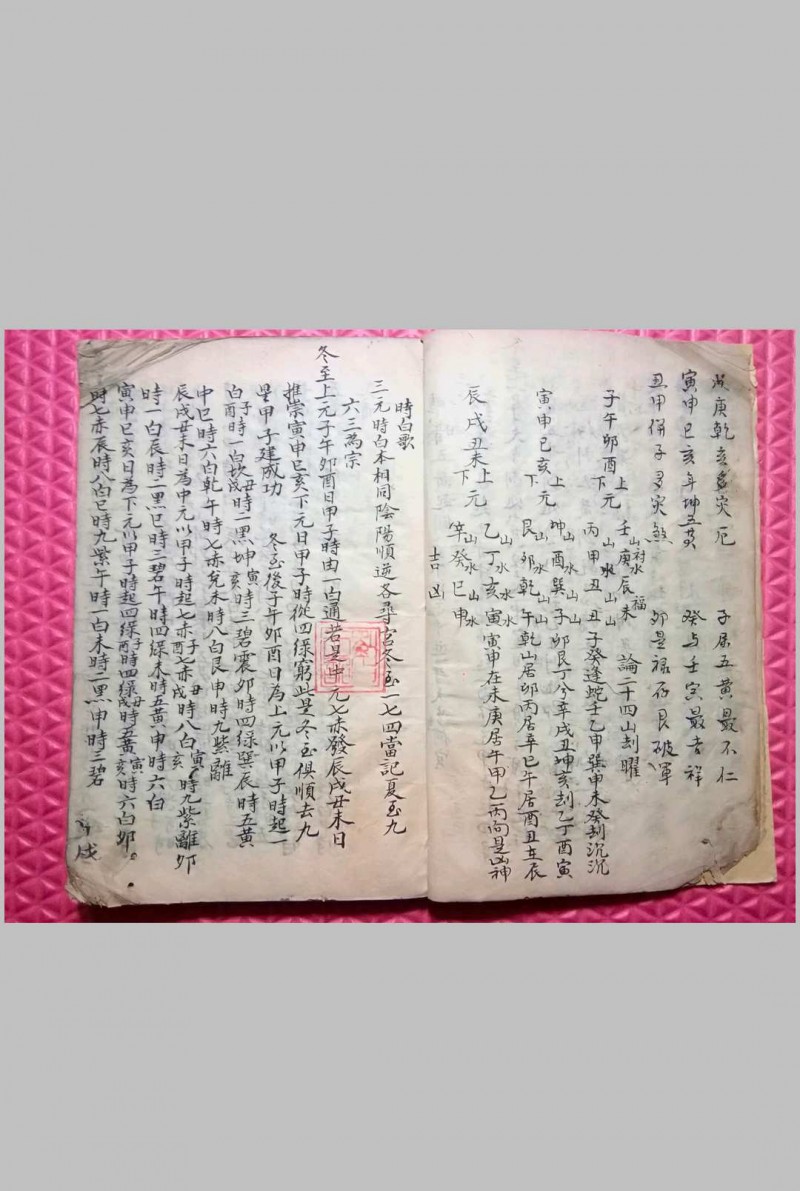 庚乾亥多灾厄 子居五黃最不仁
寅申巳亥年坤五黃 癸与壬寅最吉祥
丑甲併子多灾煞 卯是祿存艮破軍
子午卯酉上元 壬山庚水辰未 福 論二十四山刦曜
下元 丙山甲水丑山 丑子癸逢蛇壬乙甲龔申未癸刦沉沉
寅申巳亥上元 坤山酉水巽山子山 卯艮丁兮辛戌丑坤亥刦乙丁酉寅
下元 艮山卯水乾山午山 乾山居卯丙居辛巳午居酉丑在辰
辰戌丑未上元 乙山丁水亥水寅水 寅申在未庚居午甲乙丙向是凶神
下元 辛山癸水巳山申水
吉凶
時白歌
三元時白本相同陰陽順逆各尋宮冬至一七四當記夏至九
六三為宗
冬至上元子午卯酉日甲子時由一白通若是中元七赤發辰戌丑未日
推崇寅申巳亥下元日甲子時從四綠窮此是冬至俱順去九
星甲子建成功 冬至後子午卯酉日為上元以甲子時起一
白子酉時一白坎丑戌時二黑坤寅亥時三碧震卯時四綠巽辰時五黃
中巳時六白乾午時七赤兌未時八白艮申時九紫離
辰戌丑未日為中元以甲子時起七赤子酉七赤丑戌時八白寅亥時九紫離卯
時一白辰時二黑巳時三碧午時四綠未時五黃申時六白
寅申巳亥日為下元以甲子時起四綠子酉時四綠丑戌時五黃寅亥時六白卯
時七赤辰時八白巳時九紫午時一白未時二黑申時三碧